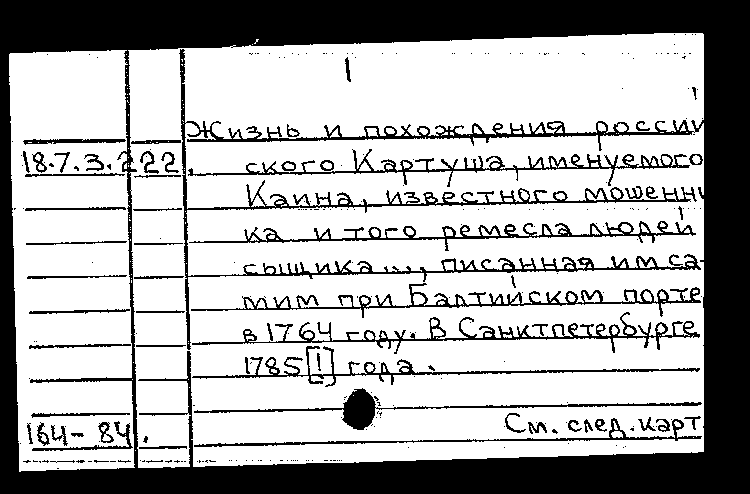 1
Жизнь и похождения россий
18.7.3.222. ского Картуша, именуемого
Каина, известного мошенни
ка и того ремесла людей
сыщика..., писанная им са-
мим при Балтийском порте
в 1764 году. В Санктпетербурге
1785 [!] года.
164-84. См. след. карт